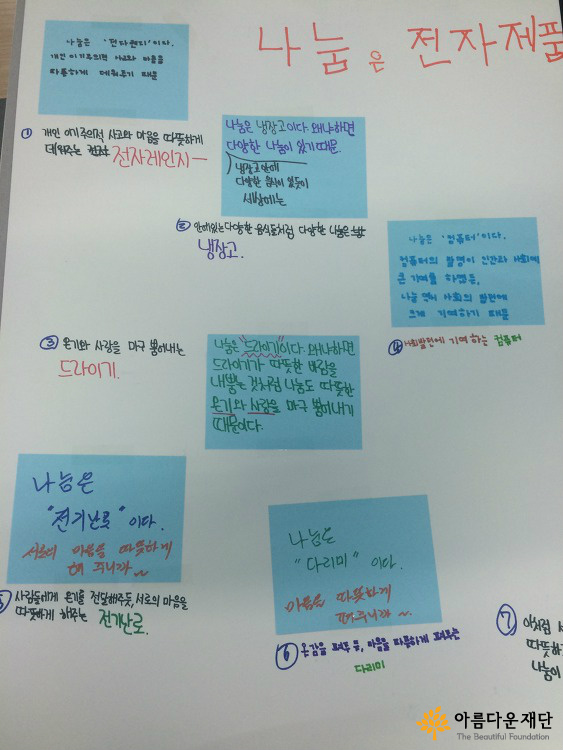 나눔은 전자제품
나눔은 '전자렌지'이다.
개인 이기주의적 사고와 마음을
따뜻하게 데워주기 때문
① 개인 이기주의적 사고와 마음을 따뜻하게
데워주는 전자레인지
나눔은 냉장고이다. 왜냐하면
다양한 나눔이 있기 때문.
냉장고 안에
다양한 음식이 있듯이
세상에는
② 안에있는 다양한 음식들처럼 다양한 나눔은
냉장고.
나눔은 '컴퓨터'이다.
컴퓨터의 발명이 인간과 사회에
큰 기여를 하였듯,
나눔 역시 사회의 발전에
크게 기여하기 때문
③ 온기와 사랑을 마구 뿜어내는
드라이기.
나눔은 "드라이기"이다. 왜냐하면
드라이기가 따뜻한 바람을
내뿜는 것처럼 나눔도 따뜻한
온기와 사랑을 마구 뿜어내기
때문이다.
④ 사회발전에 기여하는 컴퓨터
나눔은
"전기난로"이다.
서로의 마음을 따뜻하게
해 주니까~
⑤ 사람들에게 온기를 전달해주듯, 서로의 마음을
따뜻하게 해주는 전기난로.
나눔은
"다리미"이다.
마음을 따뜻하게
펴주니까~
⑥ 옷감을 펴주듯, 마음을 따뜻하게 펴주는
다리미
⑦ 이처럼
따뜻하
나눔이
아름다운재단
The Beautiful Foundation